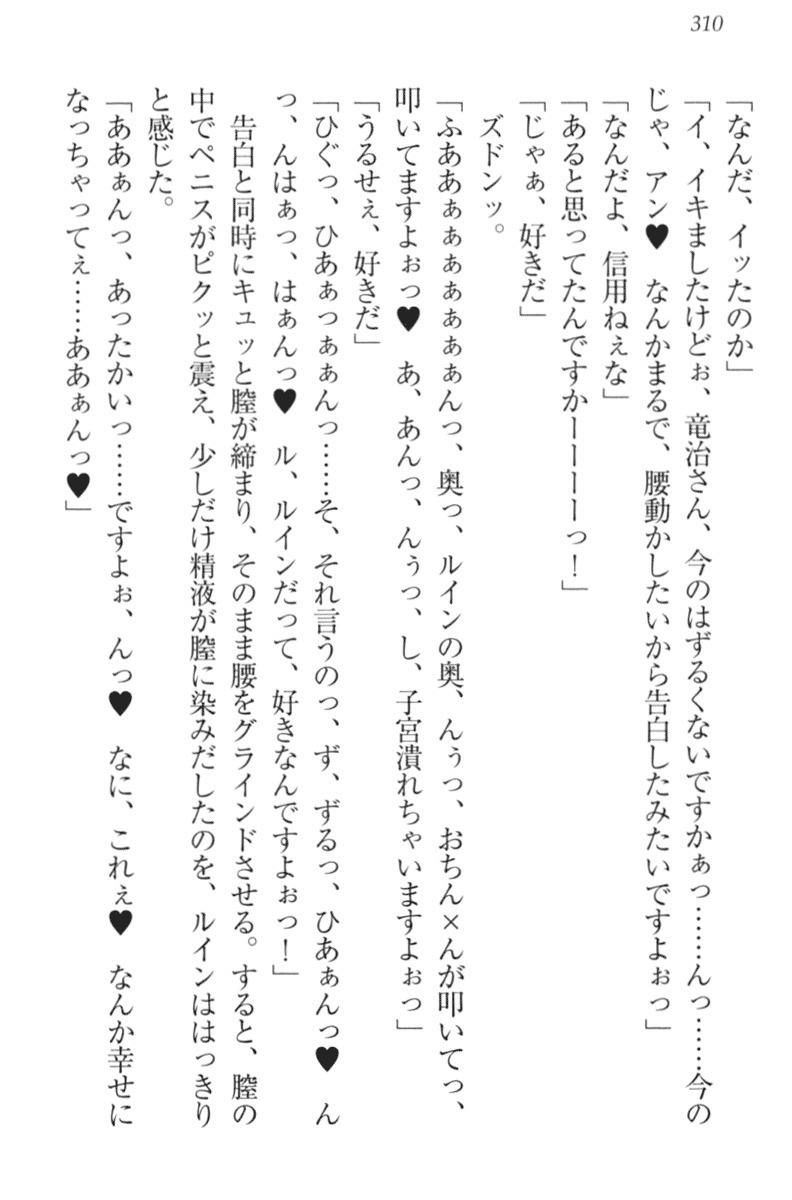 310
「なんだ、イッたのか」
「イ、イキましたけどぉ、竜治さん、今のはずるくないですかぁっ……んっ……今の
じゃ、アン♥　なんかまるで、腰動かしたいから告白したみたいですよぉっ」
「なんだよ、信用ねぇな」
「あると思ってたんですかーーーーっ！」
「じゃぁ、好きだ」
　ズドンッ。
「ふああぁぁぁぁぁぁぁんっ、奥っ、ルインの奥、んぅっ、おちん×んが叩いてっ、
叩いてますよぉっ♥　あ、あんっ、んぅっ、し、子宮潰れちゃいますよぉっ」
「うるせぇ、好きだ」
「ひぐっ、ひあぁっぁぁんっ……そ、それ言うのっ、ず、ずるっ、ひあぁんっ♥　ん
っ、んはぁっ、はぁんっ♥　ル、ルインだって、好きなんですよぉっ！」
　告白と同時にキュッと膣が締まり、そのまま腰をグラインドさせる。すると、膣の
中でペニスがピクッと震え、少しだけ精液が膣に染みだしたのを、ルインははっきり
と感じた。
「ああぁんっ、あったかいっ……ですよぉ、んっ♥　なに、これぇ♥　なんか幸せに
なっちゃってぇ……ああぁんっ♥」